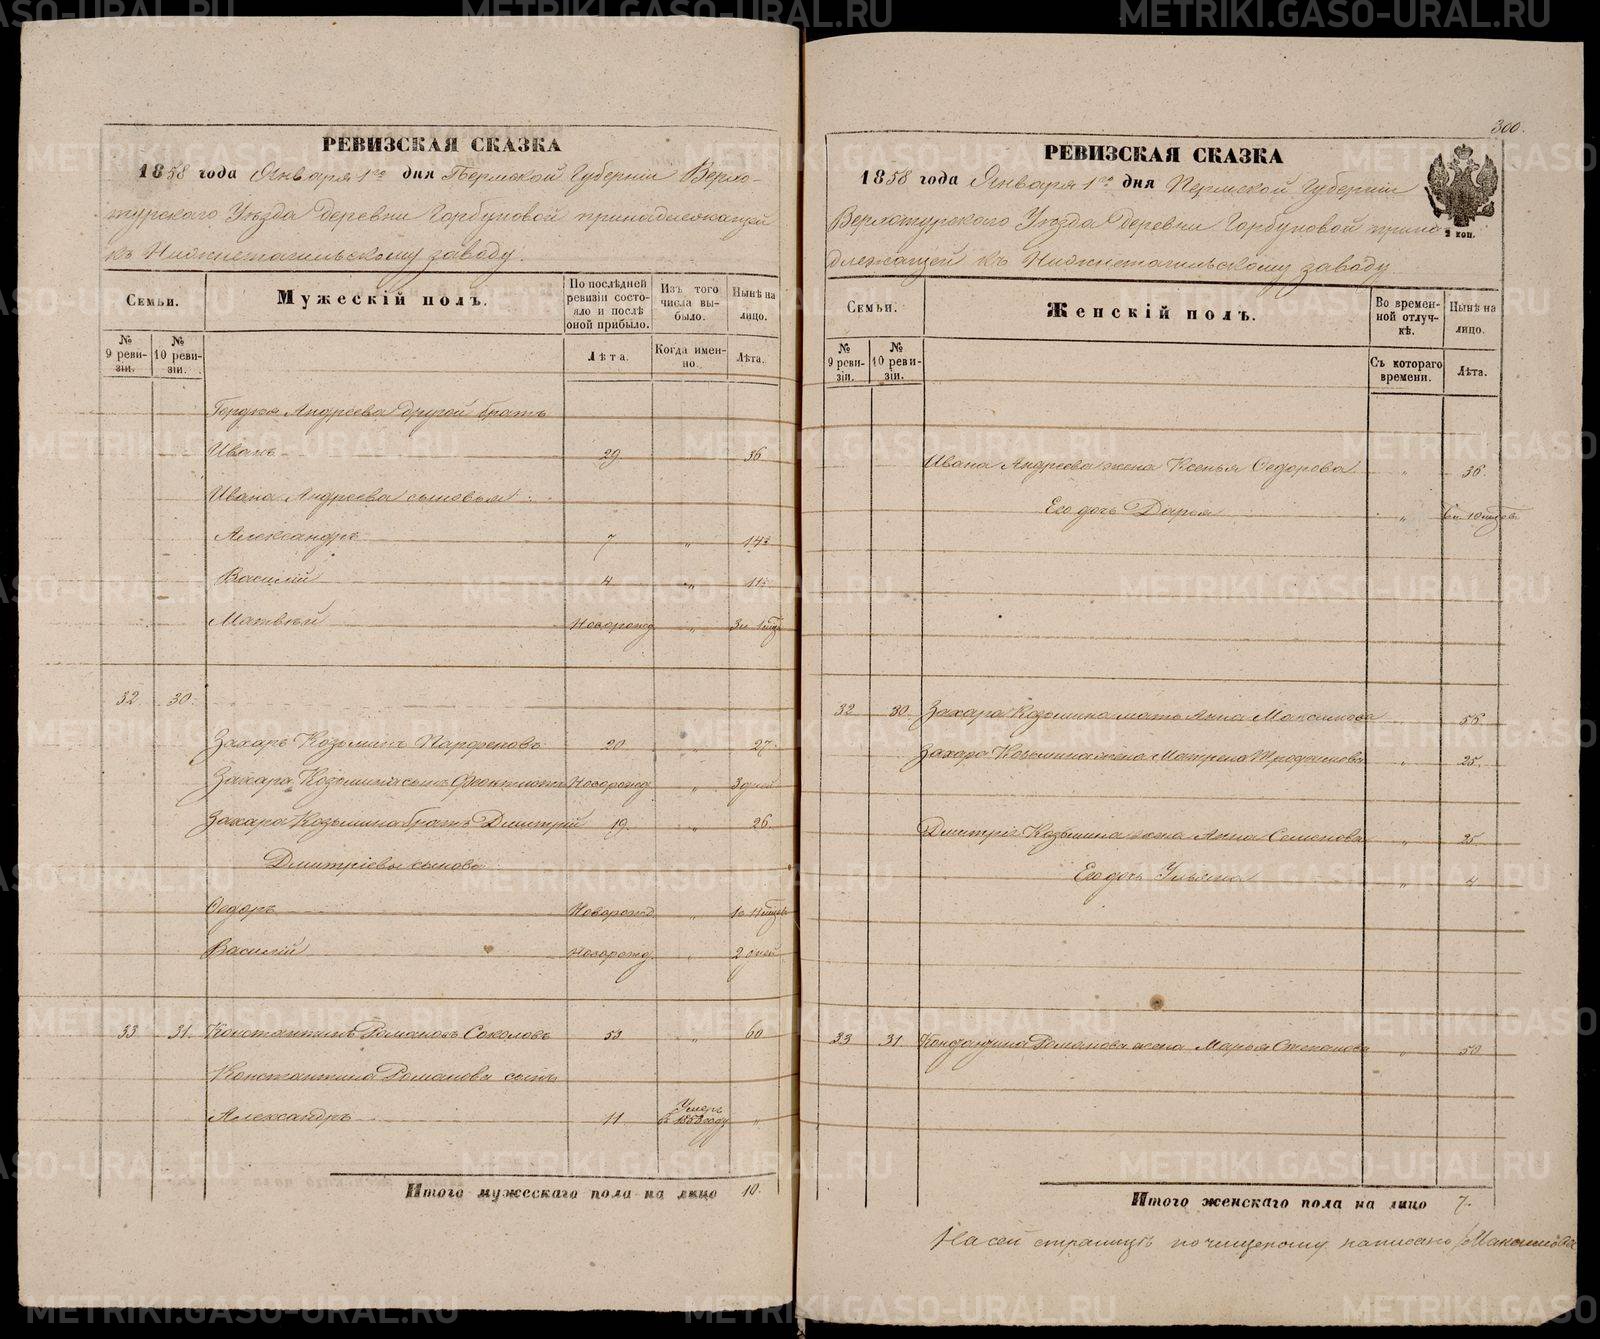 РЕВИЗСКАЯ СКАЗКА
1858 года Января 1го дня Пермской Губернiи Верхо-
турского Уѣзда деревни Горбуновой принадлежащей
къ Нижнетагильскому заводу.
Семьи.
Мужескiй полъ.
По послѣдней ревизiи состояло и послѣ оной прибыло.
Изъ того числа выбыло.
Нынѣ на лицо.
№ 9 ревизiи.
№ 10 ревизiи.
Лѣта.
Когда именно.
Лѣта.
Андреева другой братъ
Иванъ 29 36
Ивана Андреева сыновья:
Александръ 7 „ 14½
Василiй 4 „ 11½
Матвѣй Новорожд „
32 30
Захаръ Козьминъ Парфеновъ 20 „ 27
Захара Козьмина сынъ Феоктистъ Новорожд „ 3 дней
Захара Козьмина братъ Дмитрiй 19 „ 26
Дмитрiевы сыновья
Федоръ Новорожд „
Василiй Новорожд „ 2 дней
33 31 Константинъ Романовъ Соколовъ 53 „ 60
Константина Романова сынъ
Александръ 11 Умеръ въ году „
Итого мужескаго пола на лицо 10.
300.
РЕВИЗСКАЯ СКАЗКА
1858 года Января 1го дня Пермской Губернiи
Верхотурского Уѣзда деревни Горбуновой прина
длежащей къ Нижнетагильскому заводу
2 коп.
Семьи.
Женскiй полъ.
Во временной отлучкѣ.
Нынѣ на лицо.
№ 9 ревизiи.
№ 10 ревизiи.
Съ котораго времени.
Лѣта.
Ивана Андреева жена Ксенья Федорова „ 36
Его дочь Дарья „
32 30 Захара Козьмина мать Анна Максимова „ 56
Захара Козьмина жена Матрена Трофимова „ 25
Дмитрiя Козьмина жена Анна Семенова „ 25
Его дочь Ульяна „ 4
33 31 Константина Романова жена Марья Степанова „ 50
Итого женскаго пола на лицо 7.
На сей страницѣ по чищеному написано Максимова
METRIKI.GASO-URAL.RU